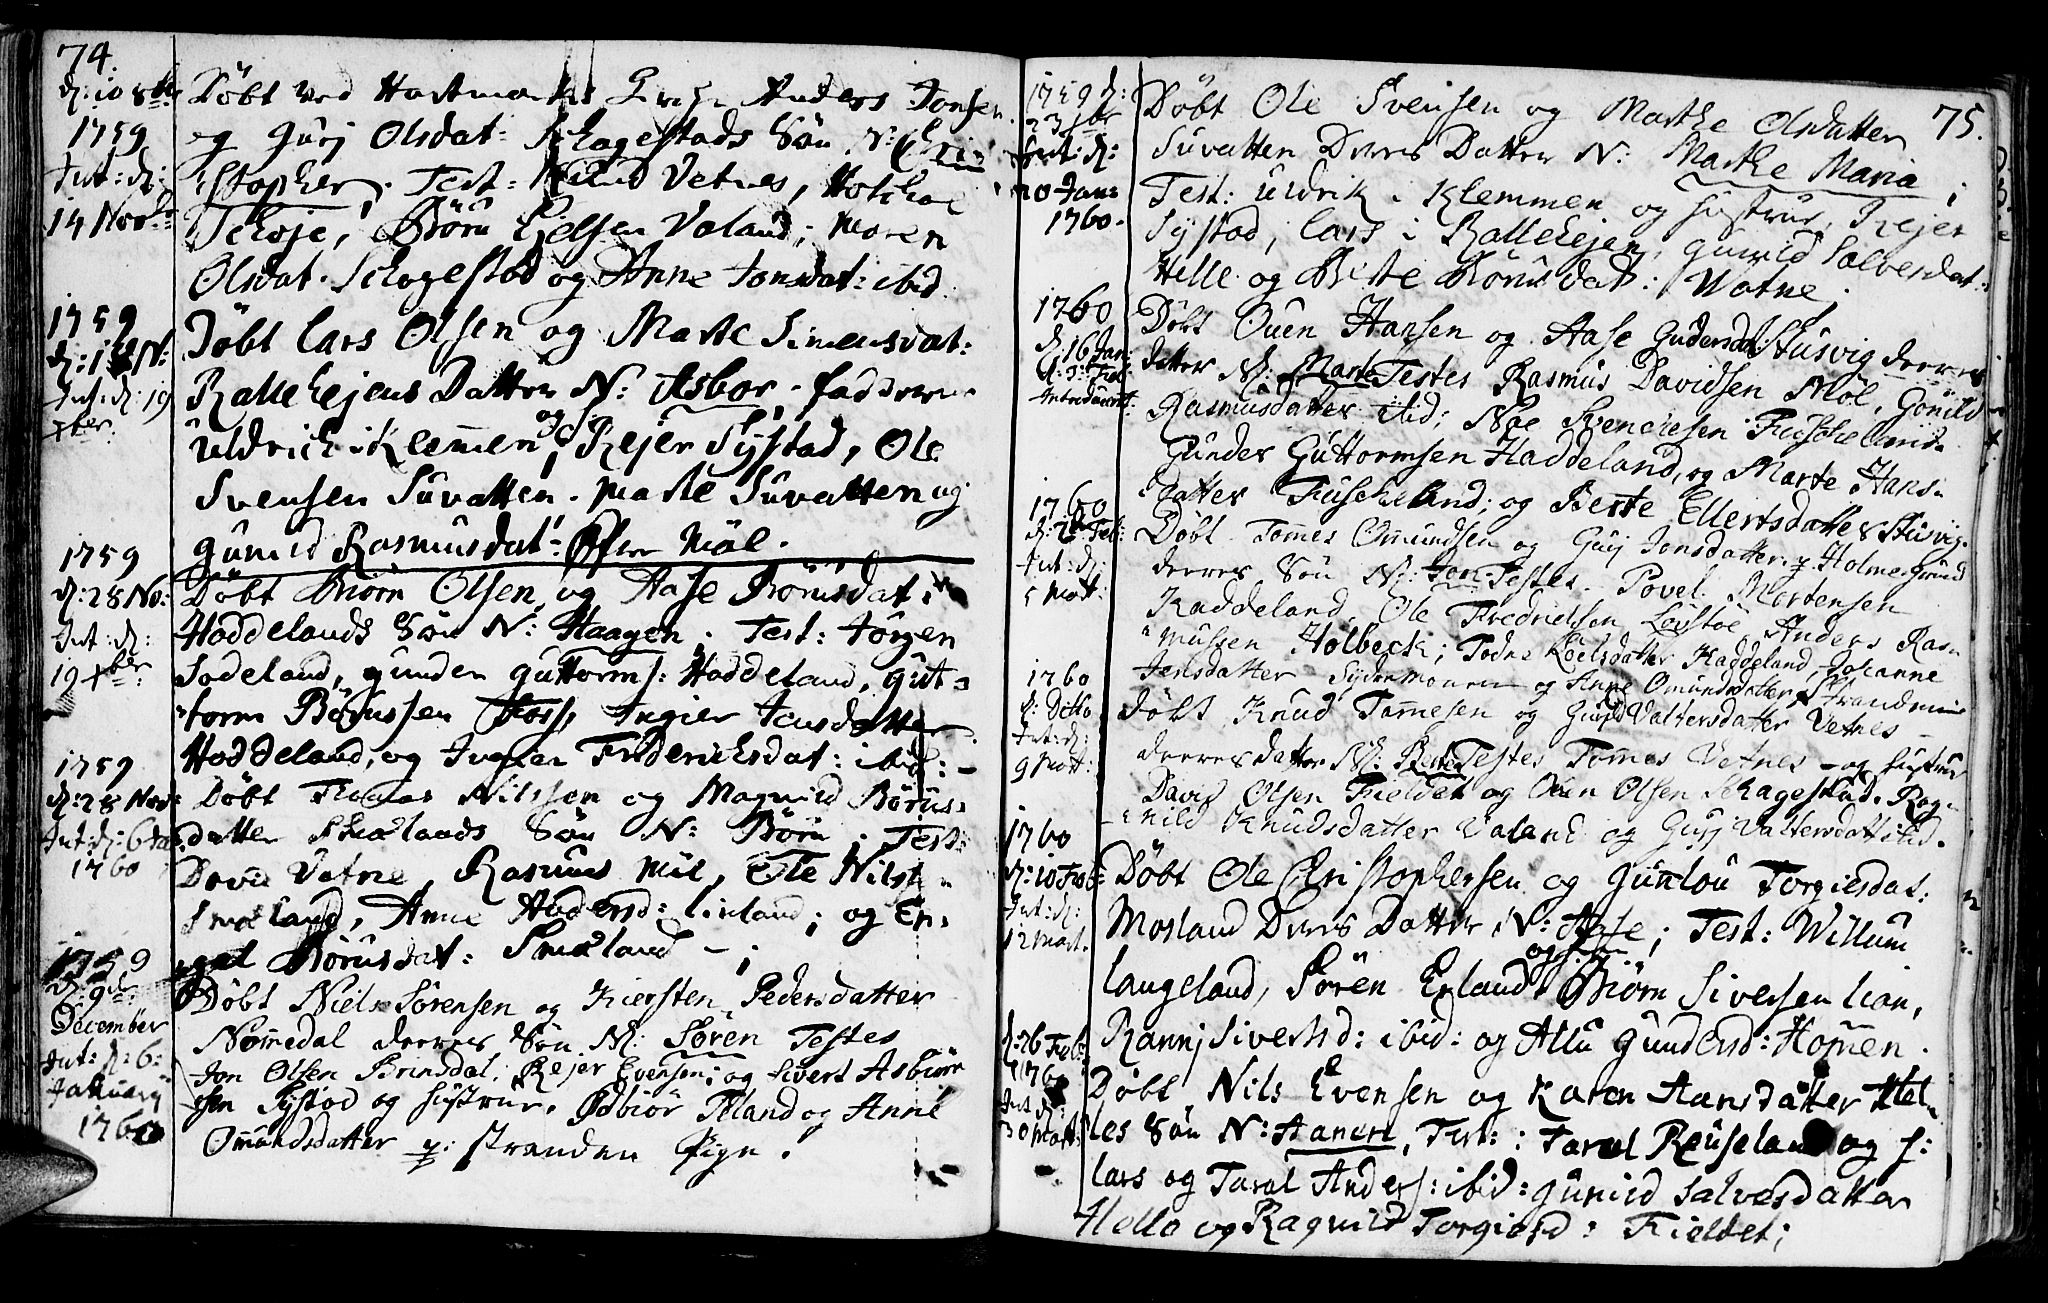 74.
d: 10 8br
1759
Int: d:
14 Novb:
Döbt ved Hartmarks Anders Jonsen
og Gurj Olsdat: Schagestads Sön N: Chri=
stopher. Test: Vetnes,
Schoje, Börn Kielsen Valand; Maren
Olsdat. Schogestad og Anne Jonsdat: ibid:
1759
Int: d: 19
xber
Döbt Lars Olsen og Marte Simensdat:
Rallehejens Datter N: Asbor. fadderne
Uldrich i Klemmen og H, Rejer Systad, Ole
Svensen Suvatten. Marte Suvatten og
Gunild Rasmusdat: Möl.
1759
d: 28 No:
Int: d:
19 xber:
Döbt Biörn Olsen og Aase Börnsdat:
Haddelands Sön N: Haagen. Test: Jörgen
Sodeland, Gunder Guttorms: Haddeland, Gut=
torm Börnssen Foss, Ingier Jensdatter
Haddeland, og Ingier Friderichsdat: ibid: -
1759
d: 28 Nov:
Int: d: 6 Jan
1760
Döbt Tomas Nilssen og Magnild Börns=
datter Smælands Sön N: Börn; Test:
David Vatne, Rasmus Möl, Ole Nils:
Smæland, Anne Andersd: Linland; og En=
gel Börnsdat: Smæland -;
1759
d: 9de
December
Int: d: 6:
January
1760
Döbt Niels Sörensen og Kiersten Pedersdatter
Nommedal deeres Sön N: Sören Testes
Jon Olsen Brinsdal, Rejer Evensen; og Sivert Asbiörn
sen Systod og hustrue. Osbiör Töland og Anne
Omundsdatter p: Stranden Pige.
75.
1759 d:
23 xbr
Int: d:
20 Jan:
1760.
Döbt Ole Svensen og Marthe Olsdatter
Suvatten Deres Datter N: Marthe Maria;
Test: Uldrik i Klemmen og hustrue, Rejer
Systad, Lars i Rallehejen, Gunild Salvesdat:
Helle og Birte Börnsdat: Watne;
1760
d. 16 Jan:
d: 3: Feb:
Introduceret:
Döbt Ouen Hansen og Aase Gundersdat Stusvig deeres
datter N: Marte Testes Rasmus Davidsen Möl, Gonild
Rasmusdatter ibid; Noe Svenchesen Fuscheland
Gunder Guttormsen Haddeland, og Marte Hans=
datter Fuscheland; og Berte Ellertsdatter Stusvig.
1760
d: 2 Feb:
Int: d:
5 Mart:
Döbt Tomes Omundsen og Gurj Jonsdatter p: Holme Grund
deeres Sön N: Jon Testes Povel Mortensen
Haddeland, Ole Fredrichsen Löistöe Anders Ras=
mussen Holbeck; Todne Roelsdatter Haddeland, Johanne
Jensdatter og Anne Omundsdatter Stranden
1760
d: Ditto
Int: d:
9 Mart:
Döbt Knud Tommesen og Gunild Valtersdatter Vetnes
deeres datter N: Berte Testes Tomes Vetnes og hustrue
David Olsen Fieldet og Oen Olsen Schagestad. Rag=
nild Knudsdatter Valand og Gurj Valtersdatt ibid.
1760
d: 10 Feb:
Int: d:
12 Mart.
Döbt Ole Christophersen og Gunlou Torgiersdat:
Mosland Deres Datter N: Aase; Test: Willum
Langeland, Sören Erland og hu: Biörn Siversen Lian,
Rannj Sivertsd: ibid: og Allu Gundersd: Homen.
d: 26 Feb:
1760
Int d:
30 Mart:
Döbt Nils Evensen og Karen Aansdatter Hel=
les Sön N: Aanen, Test: Taral Reuseland og h:
Lars og Taral Anders: ibid: Gunild Salvesdatter
Helle og Ragnild Torgiersd: Fieldet;